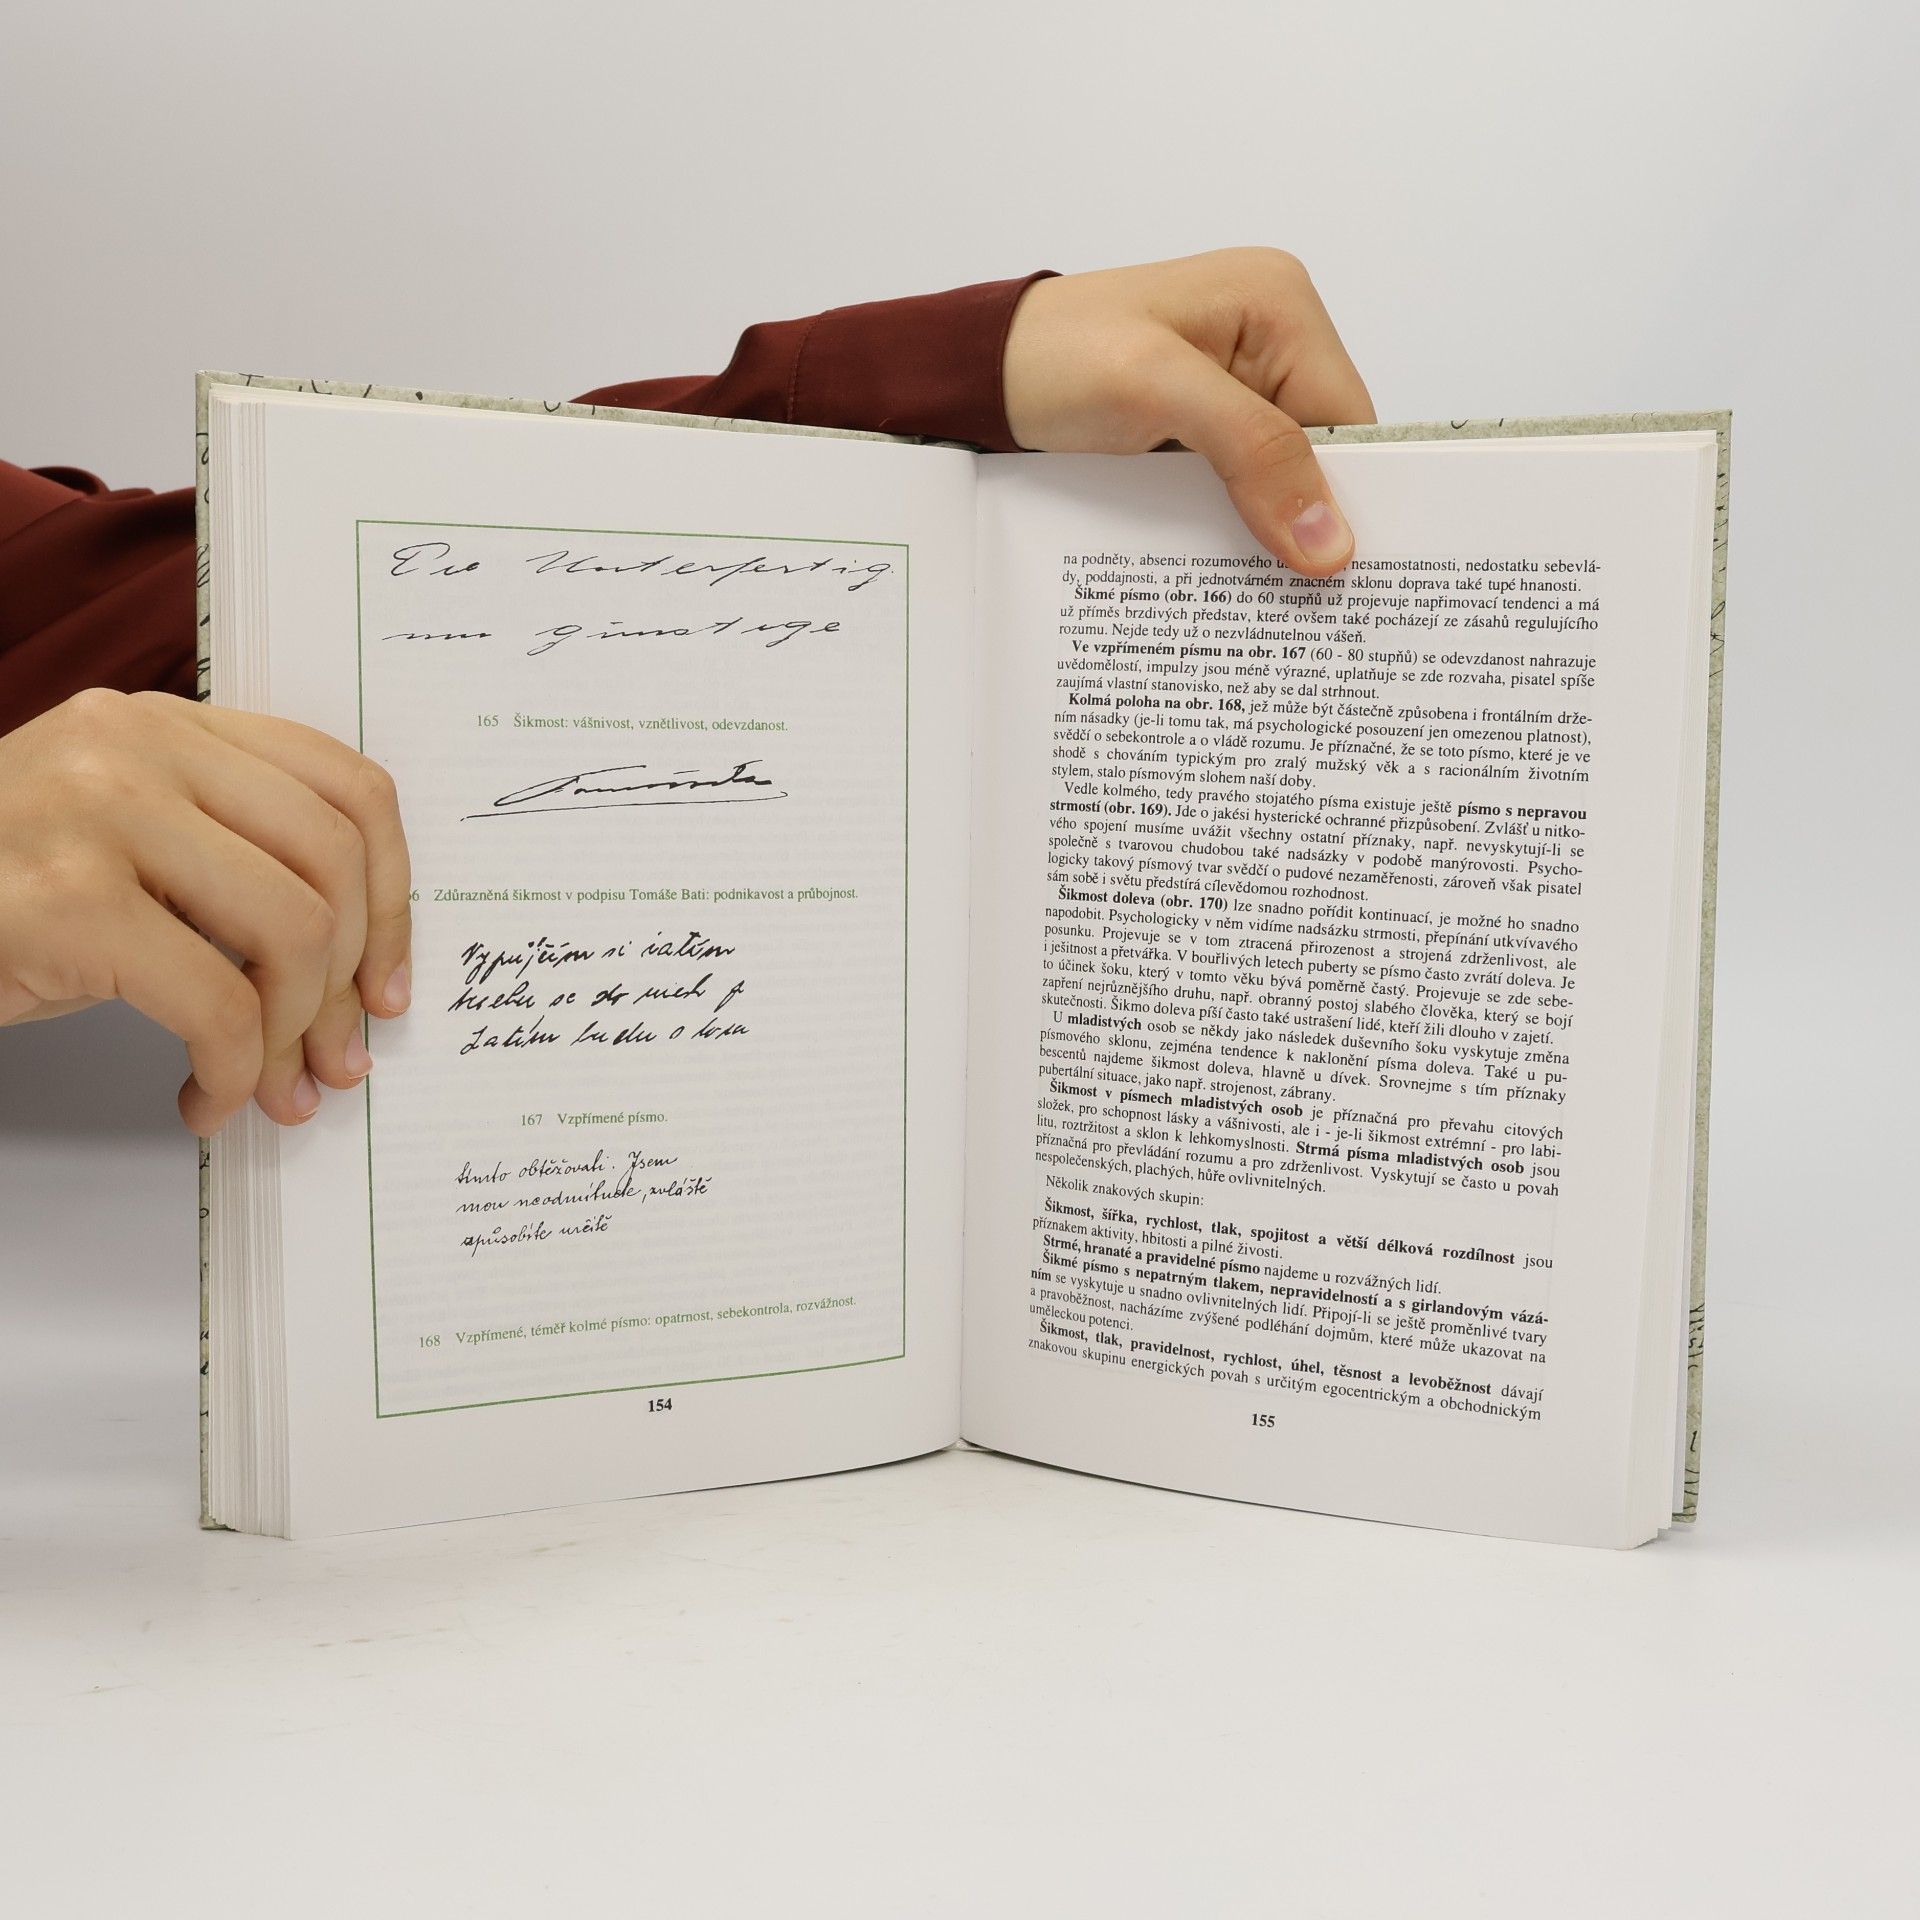 mu günstige
165 Šikmost: vášnivost, vznětlivost, odevzdanost.
6 Zdůrazněná šikmost v podpisu Tomáše Bati: podnikavost a průbojnost.
Vypůjčím si zatím
se do
Zatím budu o
167 Vzpřímené písmo.
tímto obtěžovati. Jsem
mou neodmítnete, zvláště
způsobíte určitě
168 Vzpřímené, téměř kolmé písmo: opatrnost, sebekontrola, rozvážnost.
154
na podněty, absenci rozumového nesamostatnosti, nedostatku sebevlá-
dy, poddajnosti, a při jednotvárném značném sklonu doprava také tupé hnanosti.
Šikmé písmo (obr. 166) do 60 stupňů už projevuje napřimovací tendenci a má
už příměs brzdivých představ, které ovšem také pocházejí ze zásahů regulujícího
rozumu. Nejde tedy už o nezvládnutelnou vášeň.
Ve vzpřímeném písmu na obr. 167 (60 - 80 stupňů) se odevzdanost nahrazuje
uvědomělostí, impulzy jsou méně výrazné, uplatňuje se zde rozvaha, pisatel spíše
zaujímá vlastní stanovisko, než aby se dal strhnout.
Kolmá poloha na obr. 168, jež může být částečně způsobena i frontálním drže-
ním násadky (je-li tomu tak, má psychologické posouzení jen omezenou platnost),
svědčí o sebekontrole a o vládě rozumu. Je příznačné, že se toto písmo, které je ve
shodě s chováním typickým pro zralý mužský věk a s racionálním životním
stylem, stalo písmovým slohem naší doby.
Vedle kolmého, tedy pravého stojatého písma existuje ještě písmo s nepravou
strmostí (obr. 169). Jde o jakési hysterické ochranné přizpůsobení. Zvlášť u nitko-
vého spojení musíme uvážit všechny ostatní příznaky, např. nevyskytují-li se
společně s tvarovou chudobou také nadsázky v podobě manýrovosti. Psycho-
logicky takový písmový tvar svědčí o pudové nezaměřenosti, zároveň však pisatel
sám sobě i světu předstírá cílevědomou rozhodnost.
Šikmost doleva (obr. 170) lze snadno pořídit kontinuací, je možné ho snadno
napodobit. Psychologicky v něm vidíme nadsázku strmosti, přepínání utkvívavého
posunku. Projevuje se v tom ztracená přirozenost a strojená zdrženlivost, ale
i ješitnost a přetvářka. V bouřlivých letech puberty se písmo často zvrátí doleva. Je
to účinek šoku, který v tomto věku bývá poměrně častý. Projevuje se zde sebe-
zapření nejrůznějšího druhu, např. obranný postoj slabého člověka, který se bojí
skutečnosti. Šikmo doleva píší často také ustrašení lidé, kteří žili dlouho v zajetí.
U mladistvých osob se někdy jako následek duševního šoku vyskytuje změna
písmového sklonu, zejména tendence k naklonění písma doleva. Také u pu-
bescentů najdeme šikmost doleva, hlavně u dívek. Srovnejme s tím příznaky
pubertální situace, jako např. strojenost, zábrany.
Šikmost v písmech mladistvých osob je příznačná pro převahu citových
složek, pro schopnost lásky a vášnivosti, ale i - je-li šikmost extrémní - pro labi-
litu, roztržitost a sklon k lehkomyslnosti. Strmá písma mladistvých osob jsou
příznačná pro převládání rozumu a pro zdrženlivost. Vyskytují se často u povah
nespolečenských, plachých, hůře ovlivnitelných.
Několik znakových skupin:
Šikmost, šířka, rychlost, tlak, spojitost a větší délková rozdílnost jsou
příznakem aktivity, hbitosti a pilné živosti.
Strmé, hranaté a pravidelné písmo najdeme u rozvážných lidí.
Šikmé písmo s nepatrným tlakem, nepravidelností a s girlandovým vázá-
ním se vyskytuje u snadno ovlivnitelných lidí. Připojí-li se ještě proměnlivé tvary
a pravoběžnost, nacházíme zvýšené podléhání dojmům, které může ukazovat na
uměleckou potenci.
Šikmost, tlak, pravidelnost, rychlost, úhel, těsnost a levoběžnost dávají
znakovou skupinu energických povah s určitým egocentrickým a obchodnickým
155